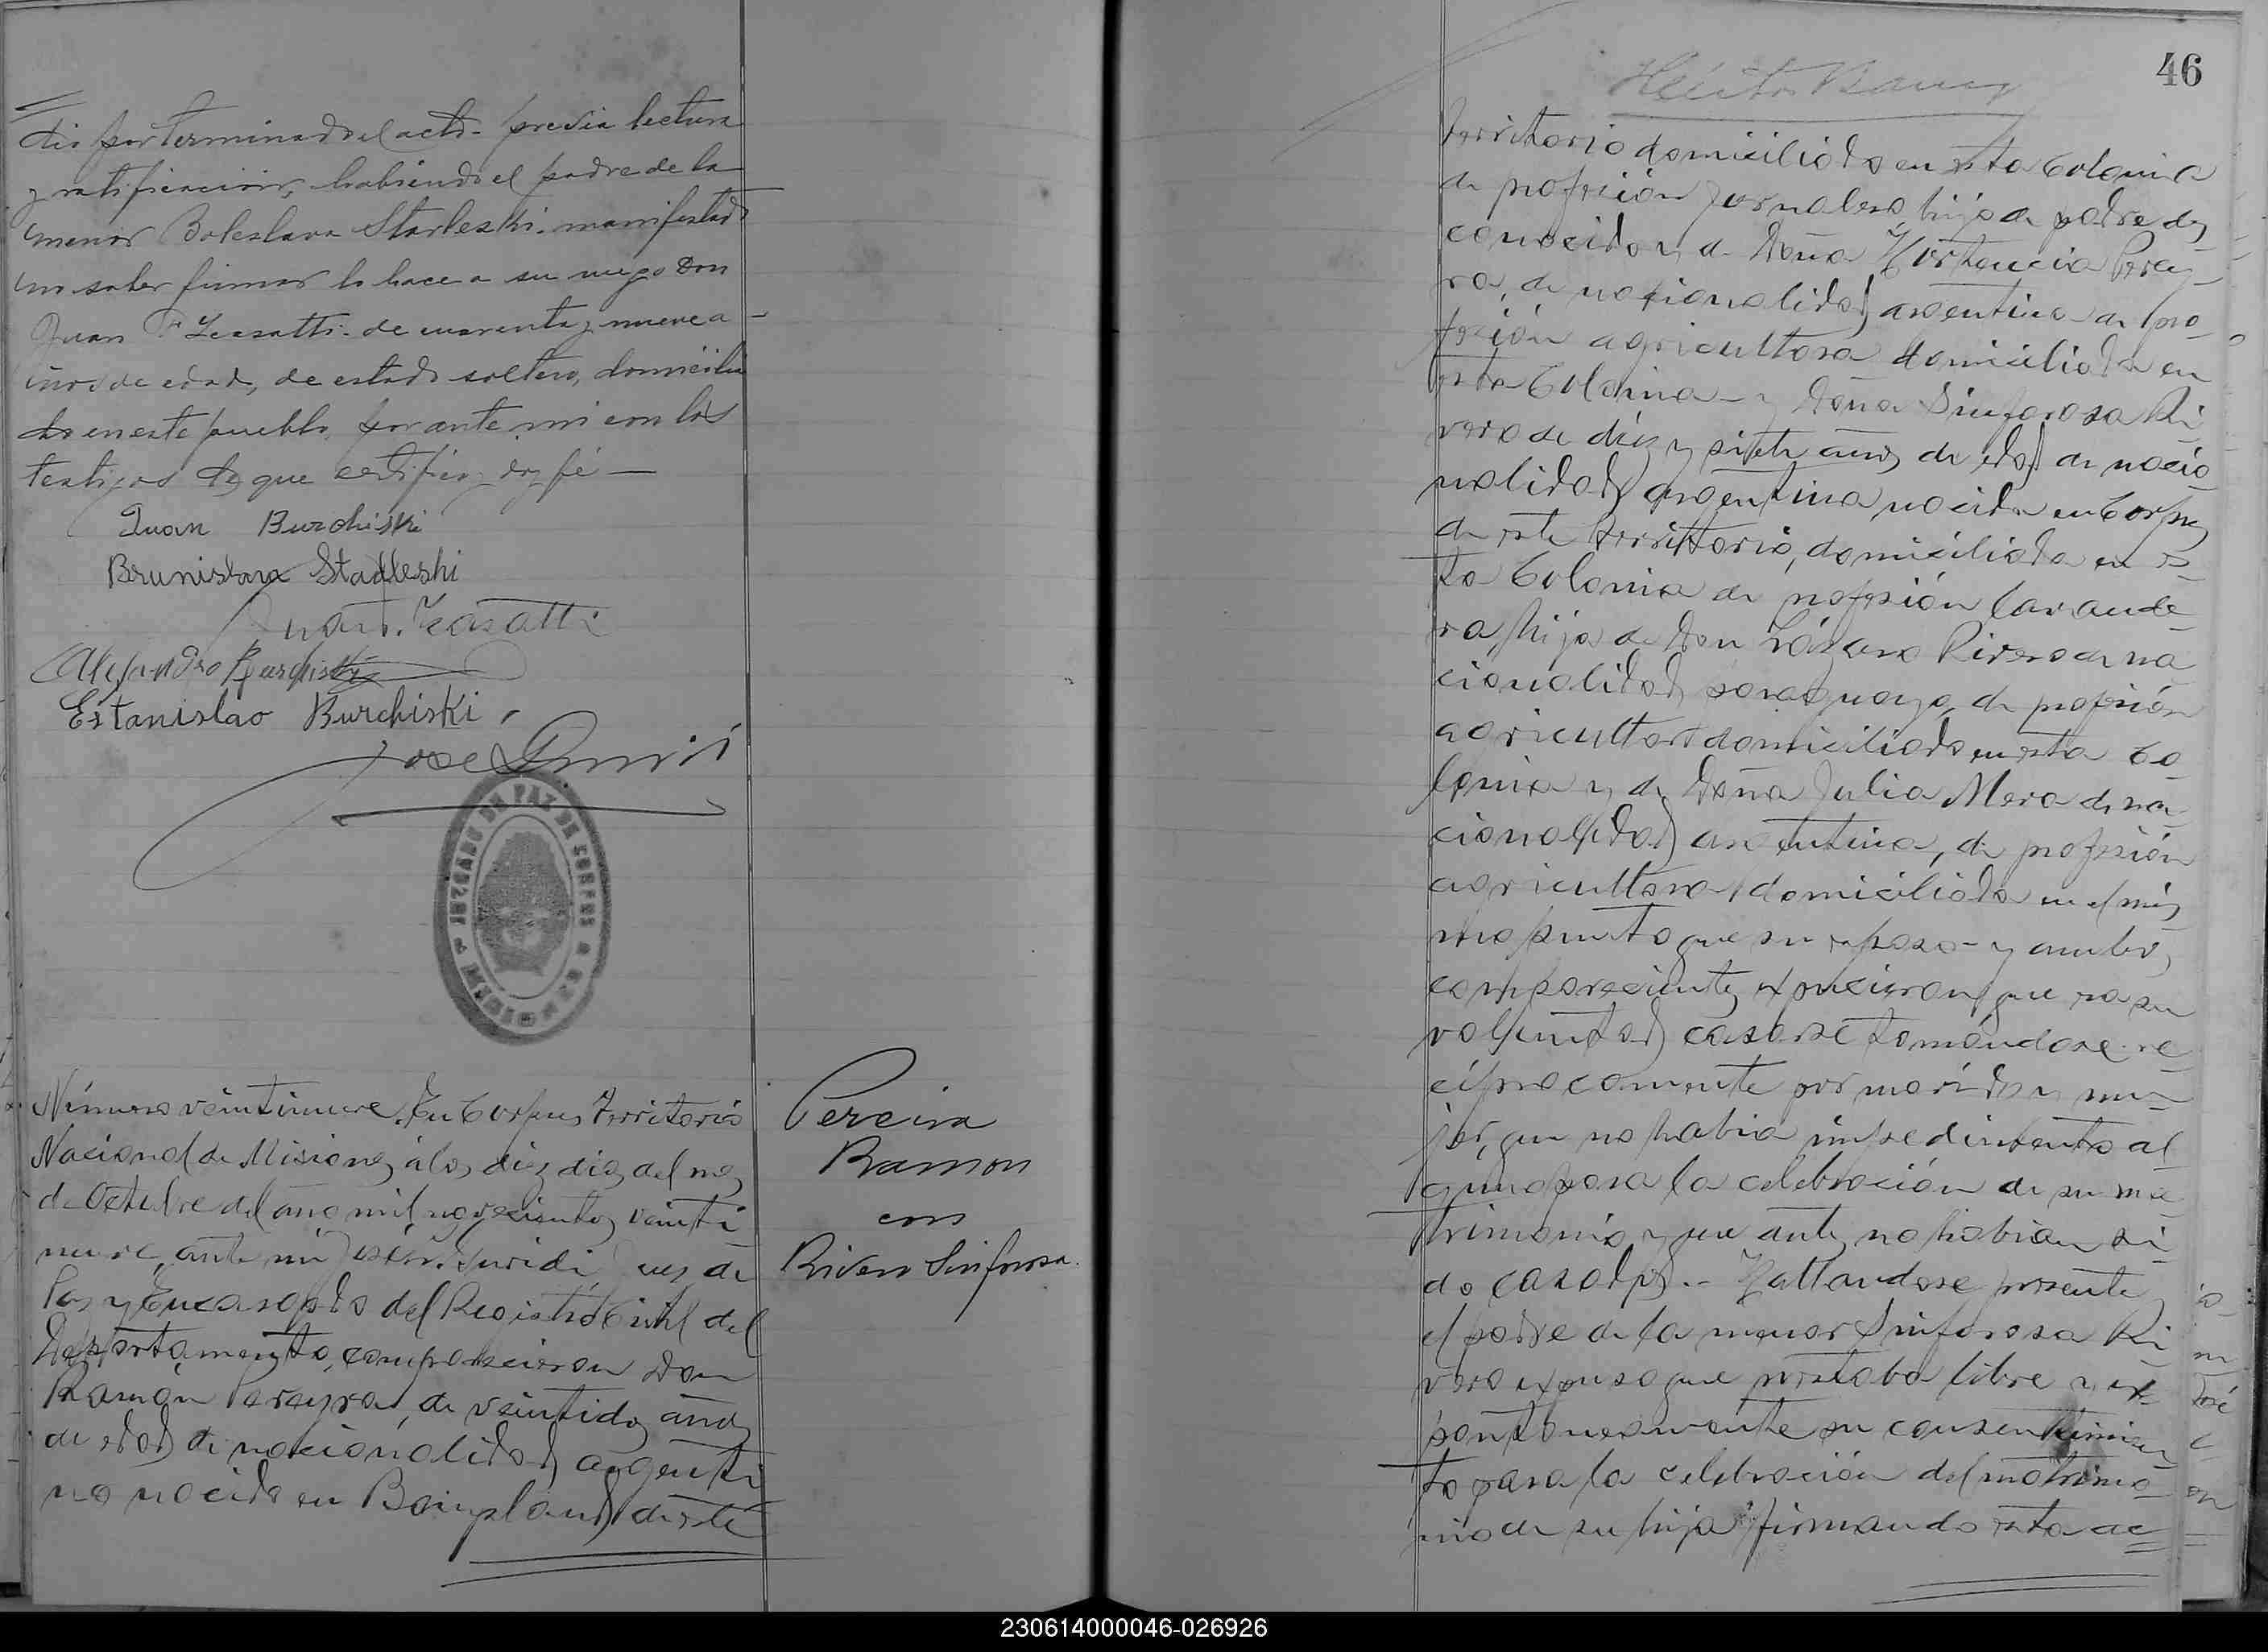 dio por terminado el acto - previa lectura
y ratificación, habiendo el padre de la
menor Boleslava Starleski manifestado
no saber firmar lo hace a su ruego Don
Juan Leasatti de cuarenta y nueve a-
ños de edad, de estado soltero, domicilia
do en este pueblo, por ante mi con los
testigos de que certifico y doy fé —
Juan Burchiski
Brunislava Stadleski
Juan
Alejandro Burchiski
Estanislao Burchiski
José
JUZGADO DE PAZ DE CORPUS
Número veintinueve. En Corpus Territorio
Nacional de Misiones, á los diez dias del mes
de Octubre del año mil novecientos veinti
nueve, ante mi José Juez de
Paz y Encargado del Registro Civil del
Departamento, comparecieron Don
Ramón Pereyra, de veintidos años
de edad de nacionalidad argenti
no nacido en Bonpland de este
Pereira
Ramon
con
Rivero Sinforosa.
46
Territorio domiciliado en esta Colonia
de profesión jornalero hijo de padre des
conocido y de Doña Hortencia Perey-
ra, de nacionalidad argentina de pro
fesión agricultora domiciliada en
esta Colonia - y Doña Sinforosa Ri
vero de diez y siete años de edad de nacio
nalidad argentina, nacida en Corpus
de este Territorio, domiciliada en es
ta Colonia de profesión lavande-
ra, hija de Don Lázaro Rivero de na
cionalidad paraguayo, de profesión
agricultor domiciliado en esta Co-
lonia y de Doña Julia Mera de na-
cionalidad argentina, de profesión
agricultora, domiciliada en el mis
mo punto que su esposo - y ambos
comparecientes expucieron que era su
voluntad casarse tomándose re
cíprocamente por marido y mu-
jer, que no habia impedimento al
guno para la celebración de su ma
trimonio y que antes no habian si
do casados.- Hallandose presente
el padre de la menor Sinforosa Ri
vero expuso que prestaba libre y es
pontaneamente su consentimien
to para la celebración del matrimo-
nio de su hija firmando esta ac
230614000046-026926